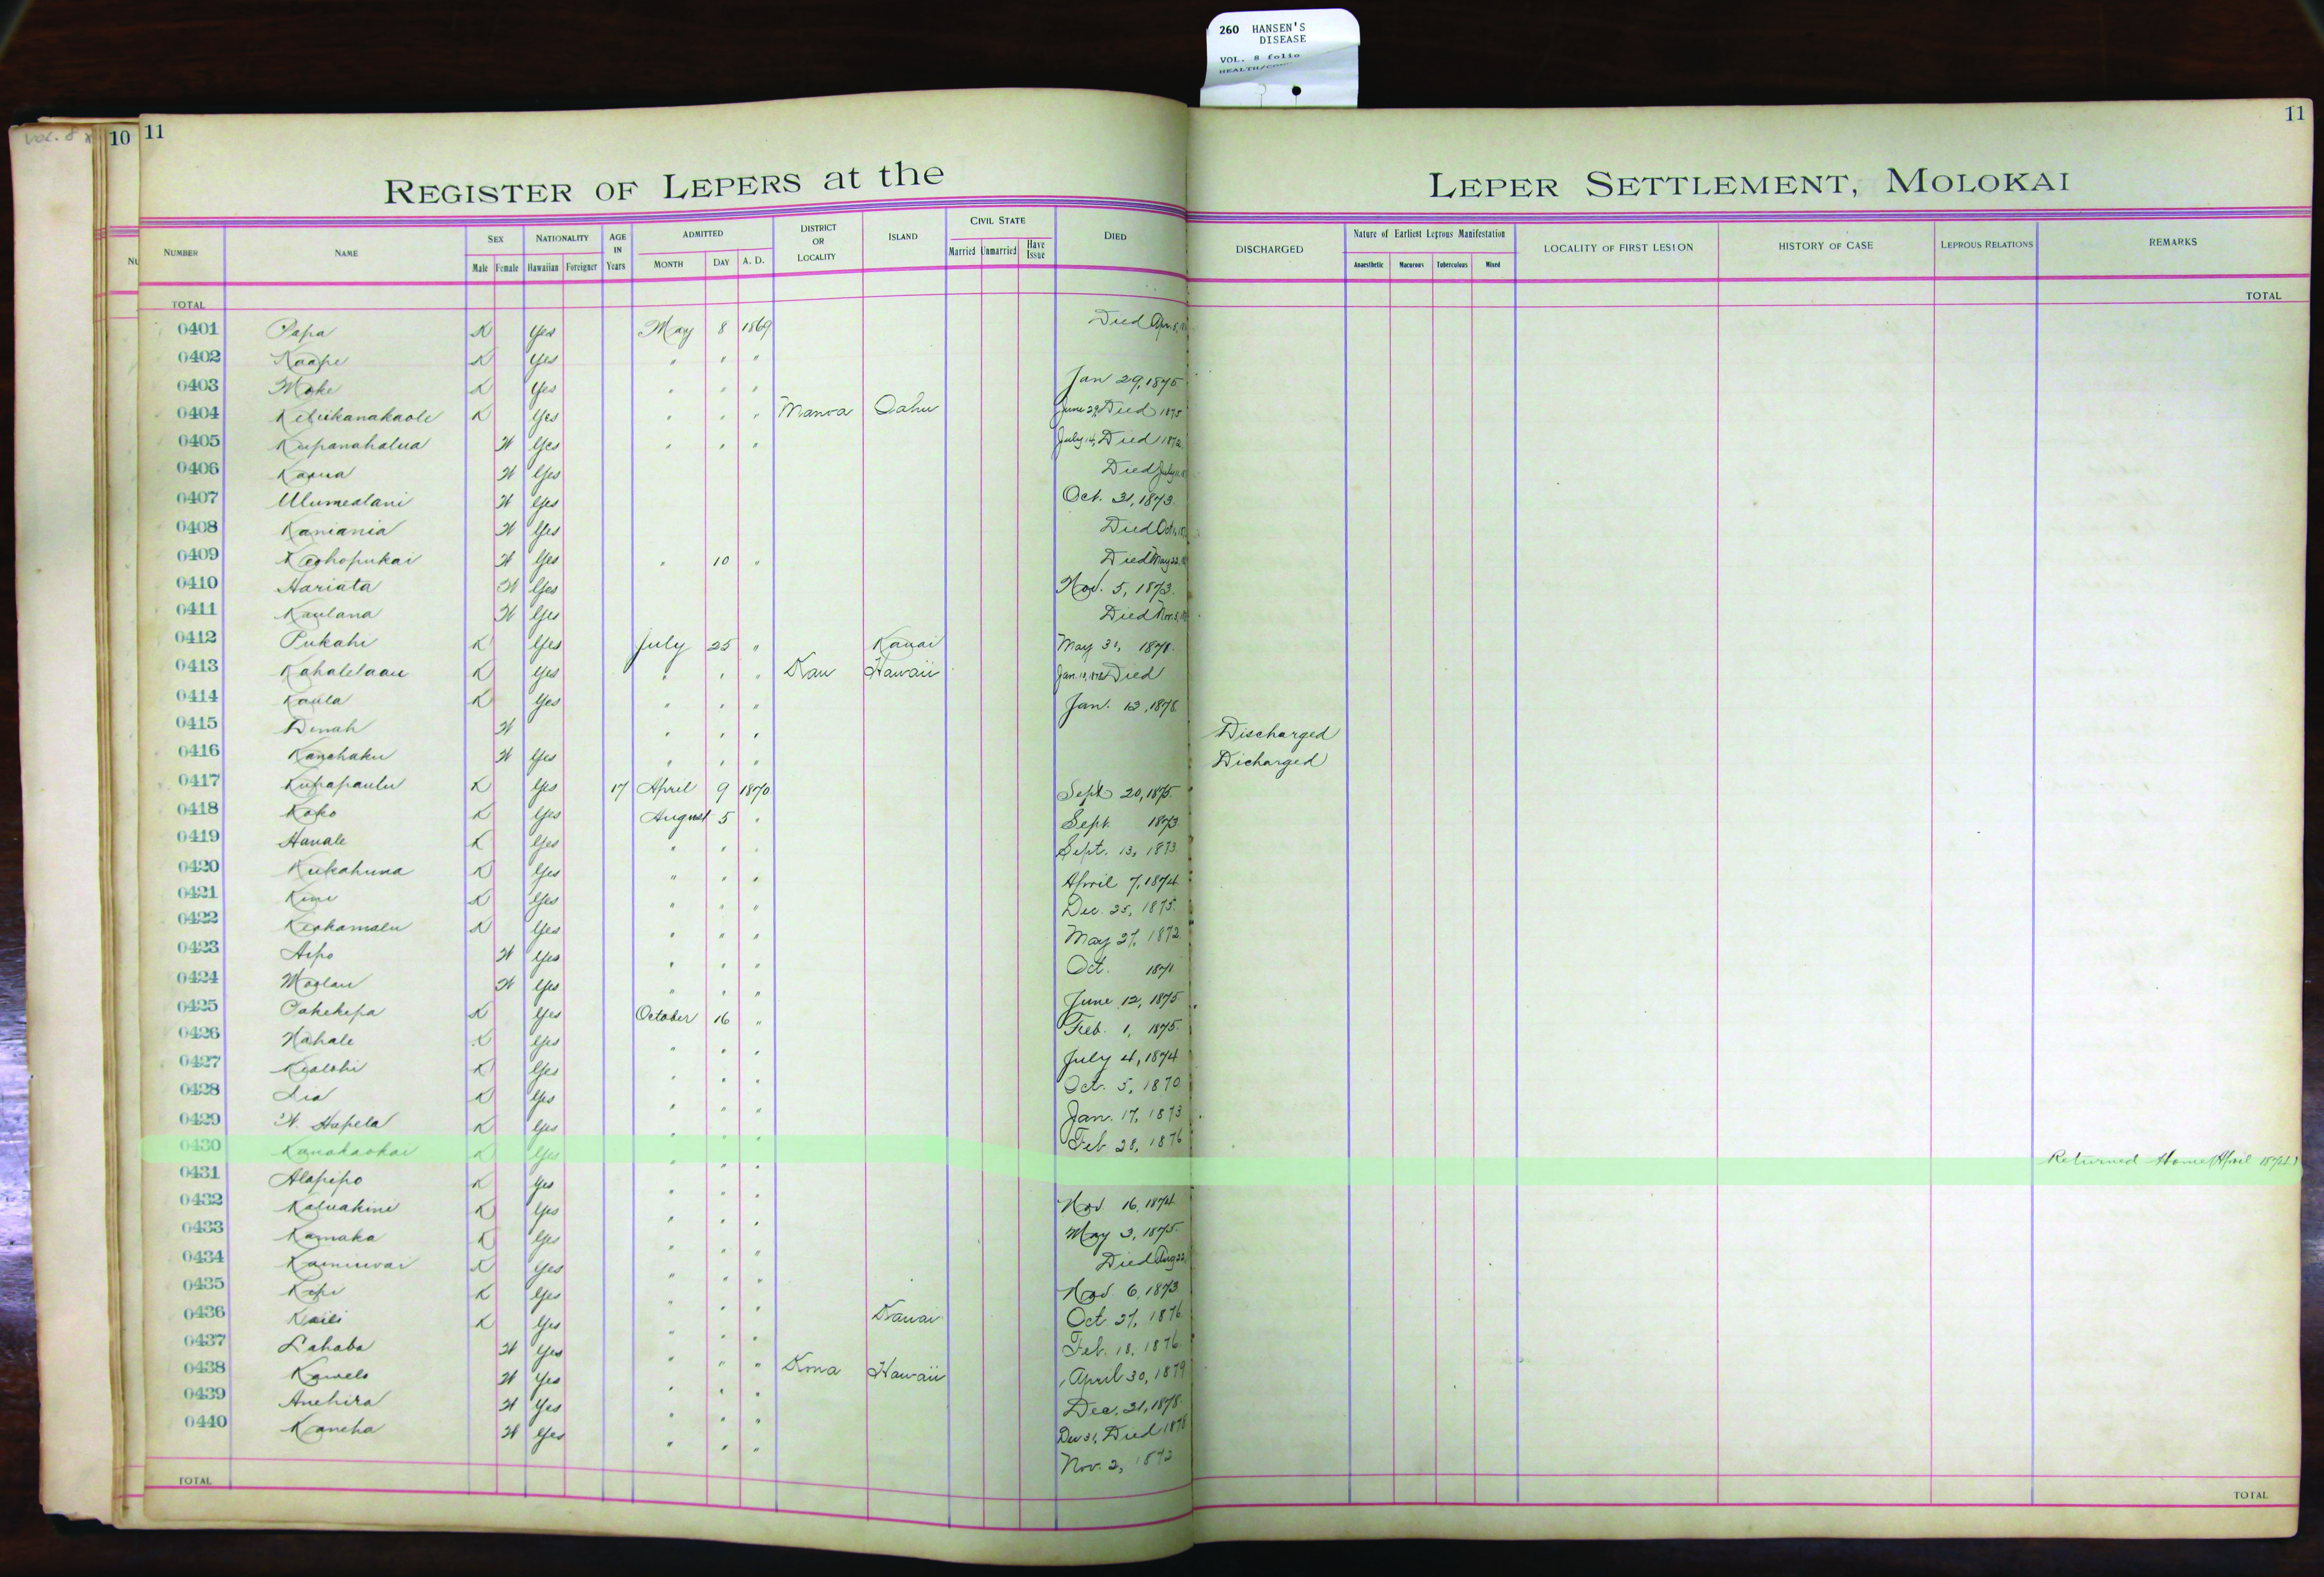 260 HANSEN'S
DISEASE
VOL. 8 folio
VOL. 8
10 11
11
REGISTER OF LEPERS at the LEPER SETTLEMENT, MOLOKAI
NUMBER NAME SEX NATIONALITY AGE IN Years ADMITTED DISTRICT OR LOCALITY ISLAND CIVIL STATE DIED DISCHARGED Nature of Earliest Leprous Manifestation LOCALITY OF FIRST LESION HISTORY OF CASE LEPROUS RELATIONS REMARKS
Male Female Hawaiian Foreigner MONTH DAY A. D. Married Unmarried Have Issue Anaesthetic Macurous Tuberculous Mixed
TOTAL TOTAL
0401 Papa K Yes May 8 1869 Died Apr. 8,
0402 Kaape K Yes " " "
0403 Moke K Yes " " " Jan 29, 1875
0404 Keliikanakaole K Yes " " " Manoa Oahu June 29, Died 1875
0405 Kupanahalua W Yes " " " July 14, Died 1872
0406 Kaona W Yes Died July
0407 Ulumealani W Yes Oct. 31, 1873.
0408 Kaniania W Yes Died Oct.
0409 Keohopukai W Yes " 10 " Died May 22,
0410 Hariata W Yes Nov. 5, 1873.
0411 Kaulana W Yes Died Nov. 5,
0412 Pukahi K Yes July 25 " Kauai May 31, 1878.
0413 Kahalelaau K Yes " " " Kau Hawaii Jan. Died
0414 Kaula K Yes " " " Jan. 13, 1878.
0415 Dinah W " " " Discharged
0416 Kanohaku W Yes " " " Dicharged
0417 Kupapaulu K Yes 17 April 9 1870 Sept 20, 1875.
0418 Koko K Yes August 5 " Sept. 1873
0419 Hanale K Yes " " " Sept. 13, 1873
0420 Kukahuna K Yes " " " April 7, 1874
0421 Kimi K Yes " " " Dec. 25, 1875.
0422 Keohamalu K Yes " " " May 27, 1872
0423 Aipo W Yes " " " Oct. 1871
0424 Moolau W Yes " " " June 12, 1875
0425 Pakekepa K Yes October 16 " Feb. 1, 1875.
0426 Nahale K Yes " " " July 4, 1874
0427 Kealohi K Yes " " " Oct. 5, 1870
0428 Lia K Yes " " " Jan. 17, 1873
0429 W. Hapela K Yes " " " Feb 28, 1876
0430 Kanakaokai K Yes " " " Returned Home (April 1874)
0431 Alapipo K Yes " " " Nov. 16, 1874
0432 Kaluakini K Yes " " " May 3, 1875.
0433 Kamaka K Yes " " " Died Aug 22,
0434 Kainiwai K Yes " " " Nov. 6, 1873
0435 Kopi K Yes " " " Oct. 27, 1876
0436 Kaili K Yes " " " Kauai Feb. 18, 1876
0437 Lahaba W Yes " " " Kona Hawaii April 30, 1879
0438 Kawelo W Yes " " " Dec. 31, 1878.
0439 Anehira W Yes " " " Dec 31, Died 1878
0440 Kaneha W Yes " " " Nov. 2, 1872
TOTAL TOTAL